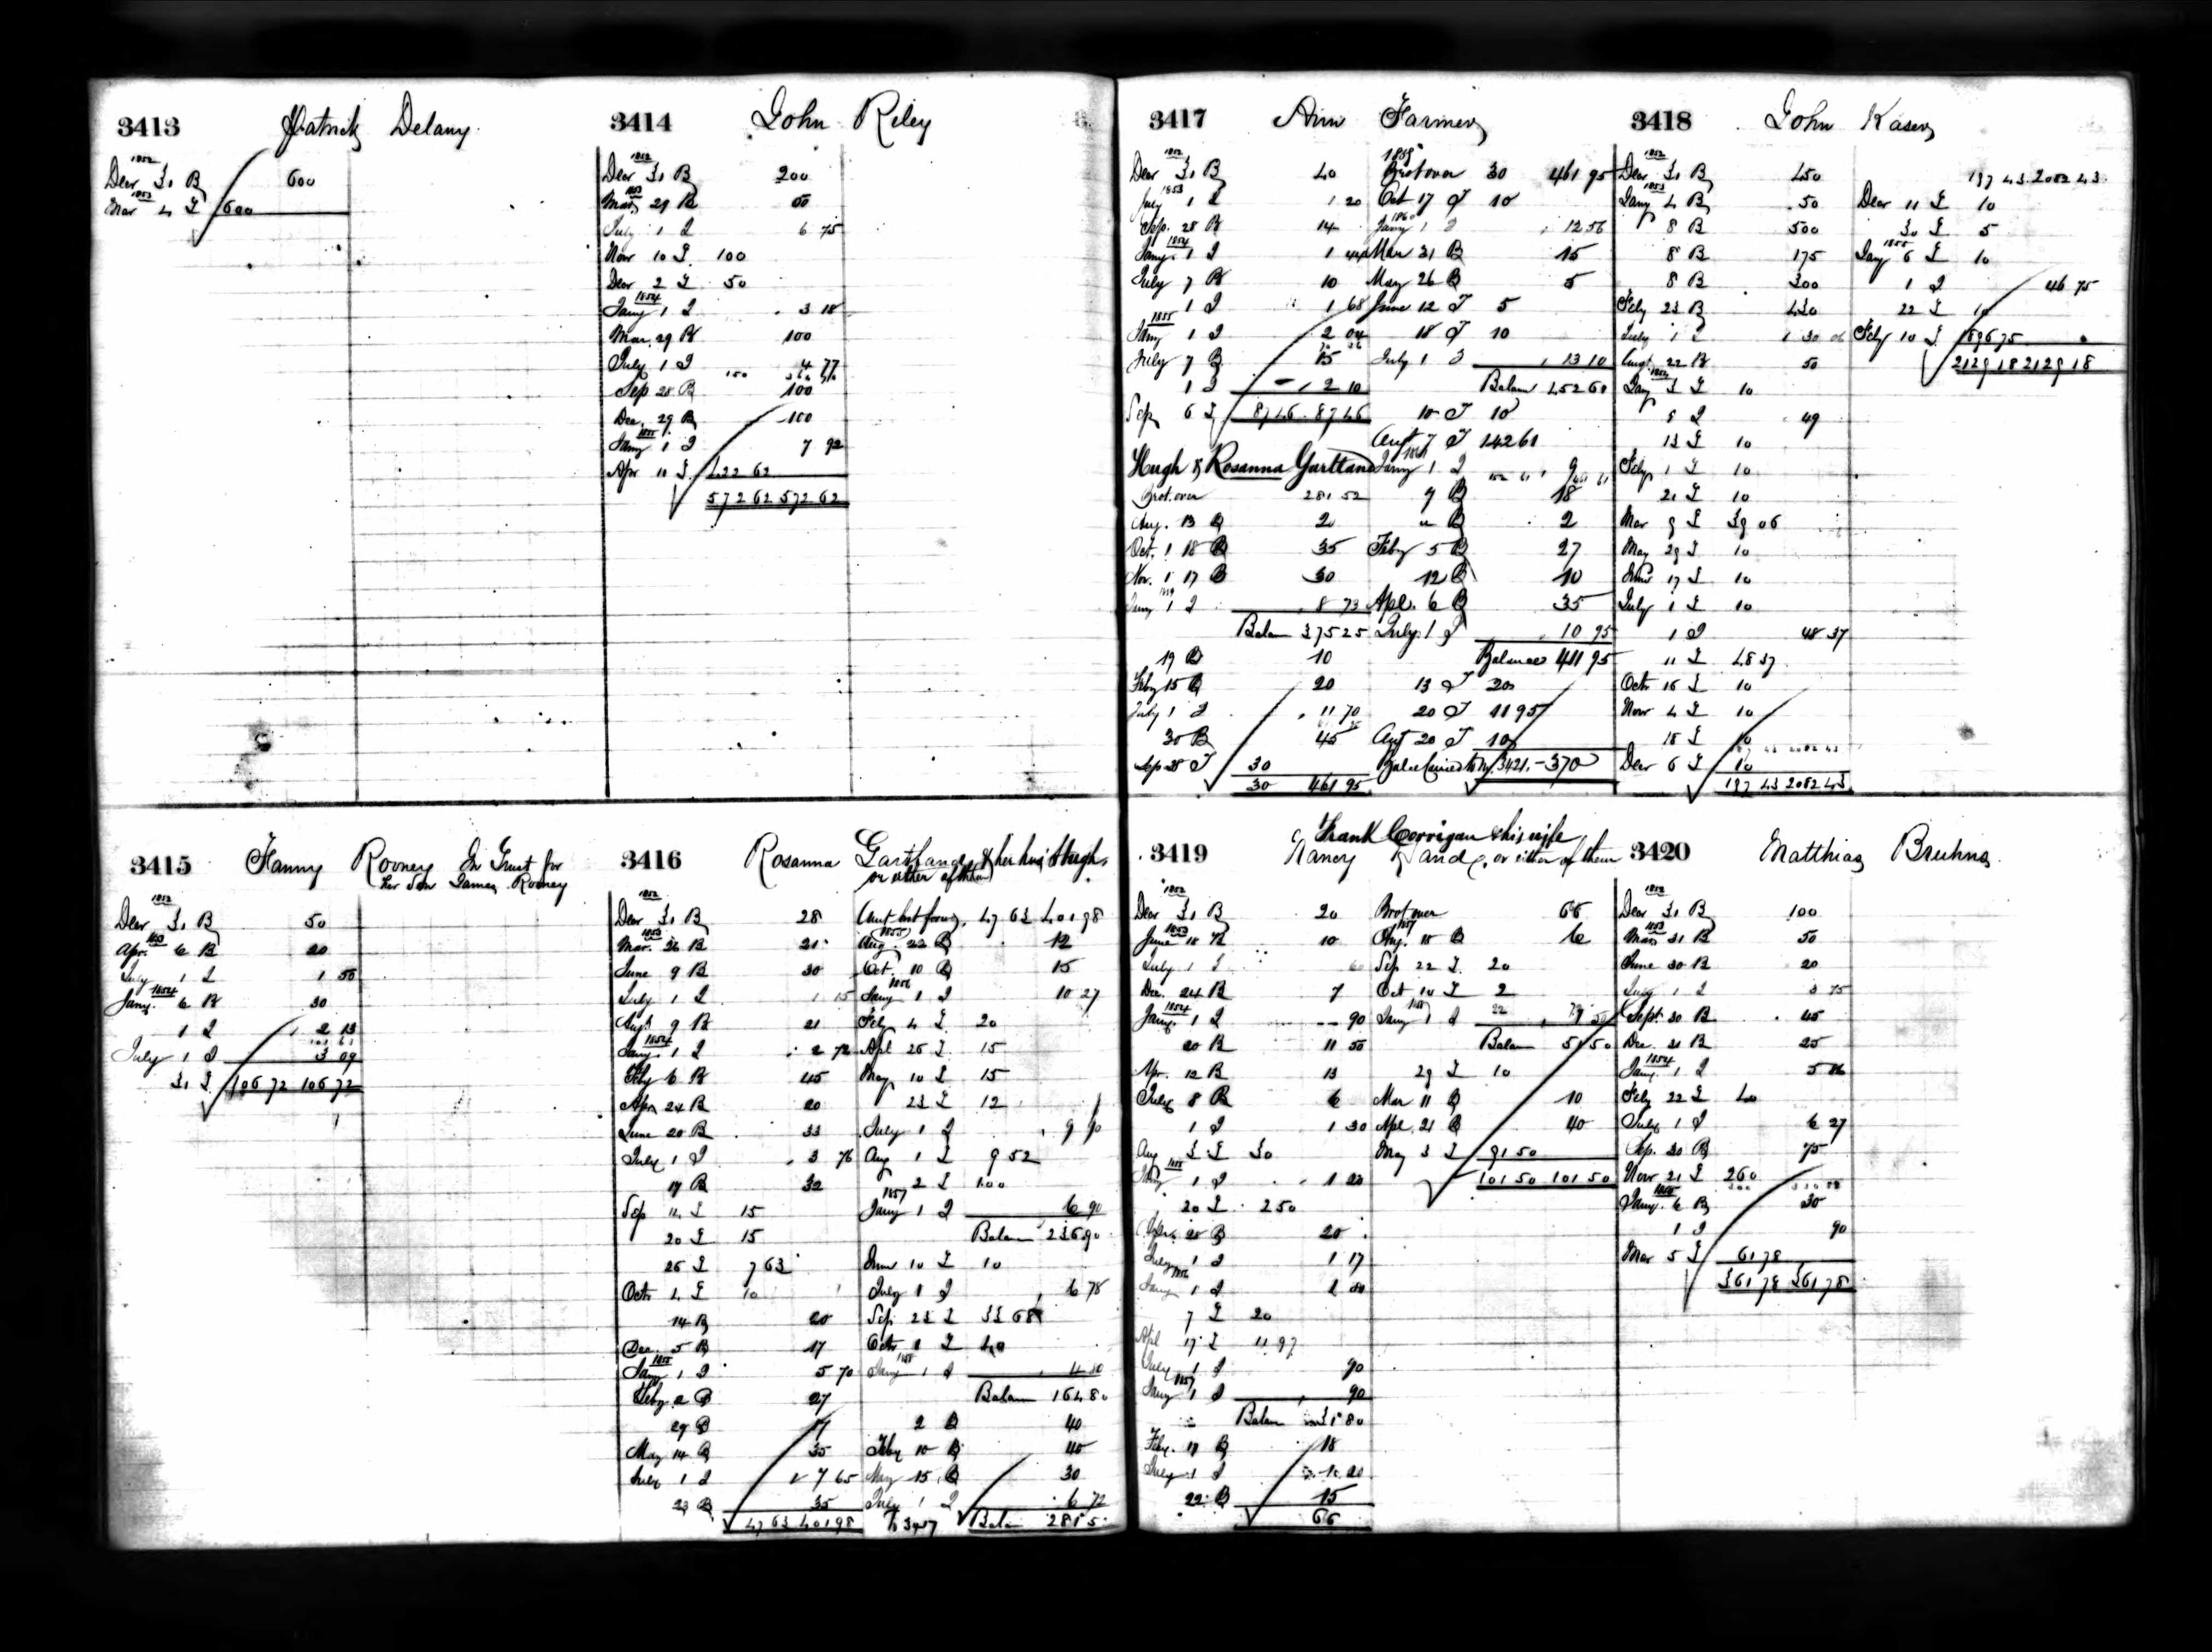 3413 Patrick Delany
1852
Decr 31 B 600
1853
Mar 4 T 600
3414 John Riley
1852
Decr 31 B 200
1853
Mar 29 B 50
July 1 I 6 75
Novr 10 T 100
Decr 2 T 50
1854
Jany 1 I 3 18
Mar. 29 B 100
July 1 I 4 77
Sep 28 B 100
Dec. 29 B 100
1855
Jany 1 I 7 92
Apr 11 T 422 62
572 62 572 62
3415 Fanny Rooney In Trust for
her Son James Rooney
1852
Decr 31 B 50
1853
Apr. 6 B 20
July 1 I 1 50
1854
Jany. 6 B 30
1 I 2 13
July 1 I 3 09
31 T 106 72 106 72
3416 Rosanna Gartland & her hus Hugh
or either of them
1852
Decr 31 B 28
1853
Mar. 26 B 21
June 9 B 30
July 1 I 1 15
Augt 9 B 21
1854
Jany. 1 I 2 72
Feby 6 B 45
Apr 24 B 20
June 20 B 33
July 1 I 3 76
17 B 32
Sep 11 T 15
20 T 15
26 T 7 63
Octr 4 T 10
14 B 20
Dec. 5 B 17
1855
Jany 1 I 5 70
Feby 2 B 27
29 B 17
May 14 B 35
July 1 I 7 65
23 B 35
47 63 401 98
Amt bot forwd. 47 63 401 98
1855
Aug. 22 B 12
Oct. 10 B 15
1856
Jany 1 I 10 27
Feb 4 T 20
Apl 25 T 15
May 10 T 15
23 T 12
July 1 I 9 90
Aug 1 T 9 52
2 T 100
1857
Jany 1 I 6 90
Balan 236 90
June 10 T 10
July 1 I 6 78
Sep 23 T 33 68
Octr 1 T 40
1858
Jany 1 I 4 80
Balan 164 80
2 B 40
Feby 10 B 40
May 15 B 30
July 1 I 6 72
Balan 281 5
3417 Ann Farmer
1852
Decr 31 B 40
1853
July 1 I 1 20
Sep. 28 B 14
1854
Jany. 1 I 1 44
July 7 B 10
1 I 1 68
1855
Jany 1 I 2 04
July 7 B 15
1 I 2 10
Sep 6 T 87 46 87 46
Hugh & Rosanna Gartland
Brot. over 281 52
Aug. 13 B 20
Oct. 18 B 35
Nov. 17 B 30
1859
Jany 1 I 8 73
Balan 375 25
19 B 10
Feby 15 B 20
July 1 I 11 70
30 B 45
Sep 28 T 30
30 461 95
1859
Brot over 30 461 95
Oct 17 T 10
1860
Jany 1 I 12 56
Mar 31 B 15
May 26 B 5
June 12 T 5
18 T 10
July 1 I 13 10
Balan 452 61
10 T 10
Augt 7 T 142 61
1861
Jany 1 I 9
9 B 18
11 B 2
Feby 5 B 27
12 B 10
Apl. 6 B 35
July. 1 I 10 95
Balance 411 95
13 T 20
20 T 11 95
Aug 20 T 10
3421. - 370
3418 John Kaser
1852
Decr 31 B 450
1853
Jany 4 B 50
8 B 500
8 B 175
8 B 300
Feby 23 B 430
July 1 I 30 06
Augt. 22 B 50
1854
Jany 3 T 10
1 I 49
13 T 10
Feby 1 T 10
21 T 10
Mar 9 T 39 06
May 29 T 10
June 17 T 10
July 1 T 10
1 I 48 37
11 T 48 37
Octr 16 T 10
Novr 4 T 10
18 T 10
Decr 6 T 10
197 43 2082 43
197 43 2082 43
Decr 11 T 10
30 T 5
1855
Jany 6 T 10
1 I 46 75
22 T 10
Feby 10 T
2129 18 2129 18
3419 Frank Corrigan & his wife
Nancy or either of them
1852
Decr 31 B 20
1853
June 18 B 10
July 1 I 60
Dec. 24 B 7
1854
Jany. 1 I 90
20 B 11 50
Apr. 12 B 13
July 8 B 6
1 I 1 30
Aug 3 T 30
1855
Jany 1 I 1 20
20 T 2 50
B 20
July 1 I 1 17
1856
Jany 1 I
7 T 20
Apl 17 T 11 97
July 1 I 90
1857
Jany 1 I 90
Balan 31 80
Feby. 18 B 18
July 1 I 1 20
22 B 15
66
Brot over 66
1857
Aug. 18 B 6
Sep 22 T 20
Oct 10 T 2
1858
Jany 1 I 1 50
Balan 51 50
29 T 10
Mar 11 B 10
Apl. 21 B 40
May 3 T 91 50
101 50 101 50
3420 Matthias Bruhns
1852
Decr 31 B 100
1853
Mar 31 B 50
June 30 B 20
July 1 I 3 75
Sept. 30 B 45
Dec. 21 B 25
1854
Jany. 1 I 5 86
Feby 22 T 40
July 1 I 6 27
Sep. 30 B 75
Novr 21 T 260
1855
Jany. 6 B 30
1 I 90
Mar 5 T 61 78
361 78 361 78